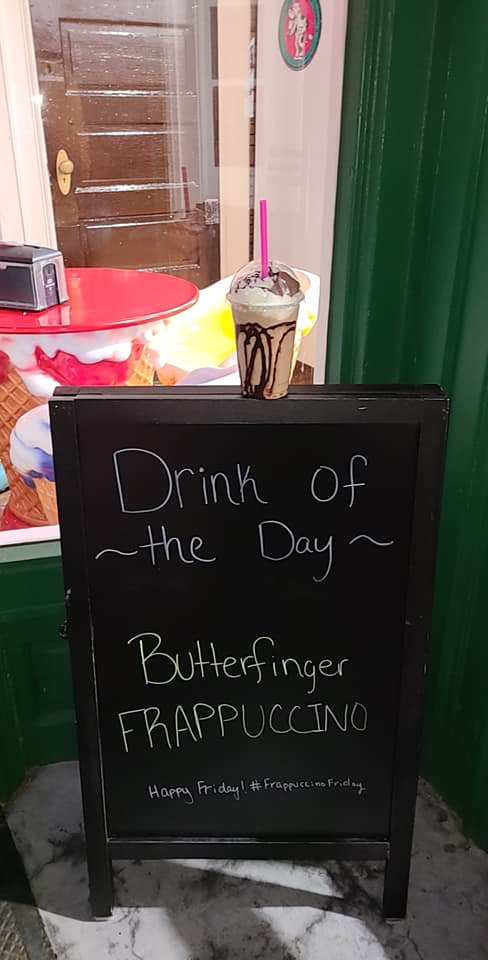 Drink of
~ the Day ~
Butterfinger
FRAPPUCCINO
Happy Friday! #FrappuccinoFriday